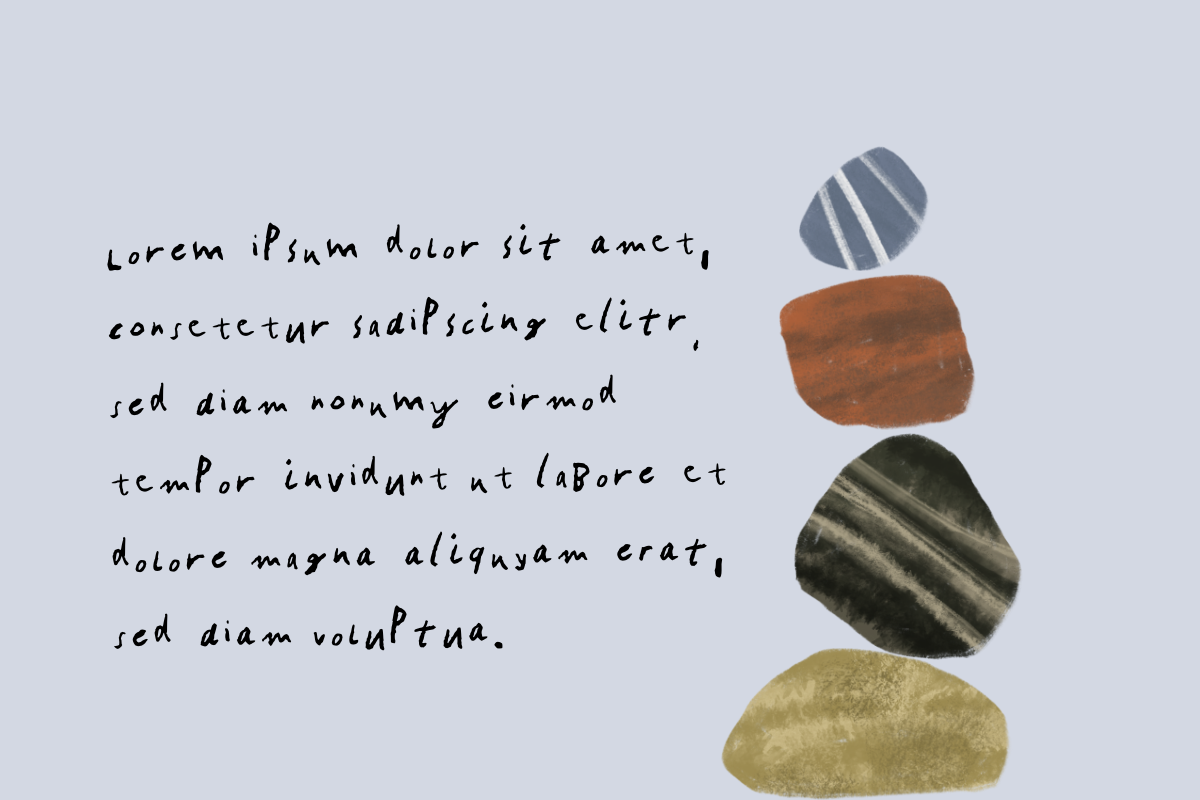 Lorem ipsum dolor sit amet,
consetetur sadipscing elitr,
sed diam nonumy eirmod
tempor invidunt ut labore et
dolore magna aliquyam erat,
sed diam voluptua.